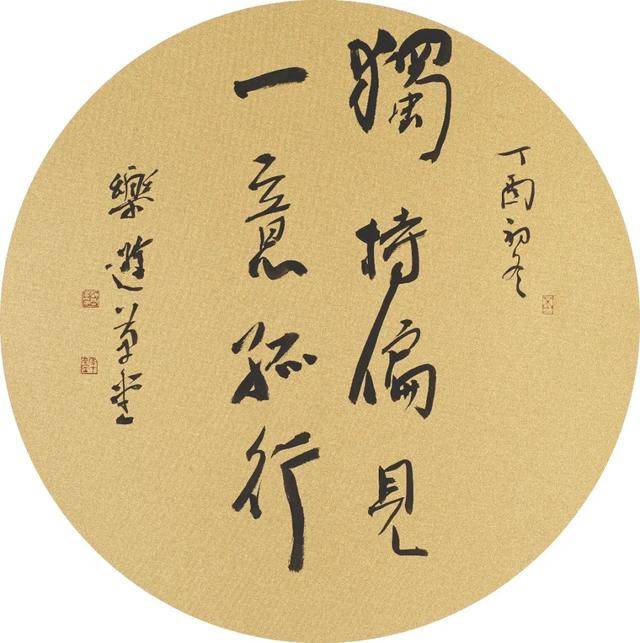 丁酉初冬
獨持偏見
一意孤行
樂遊草堂